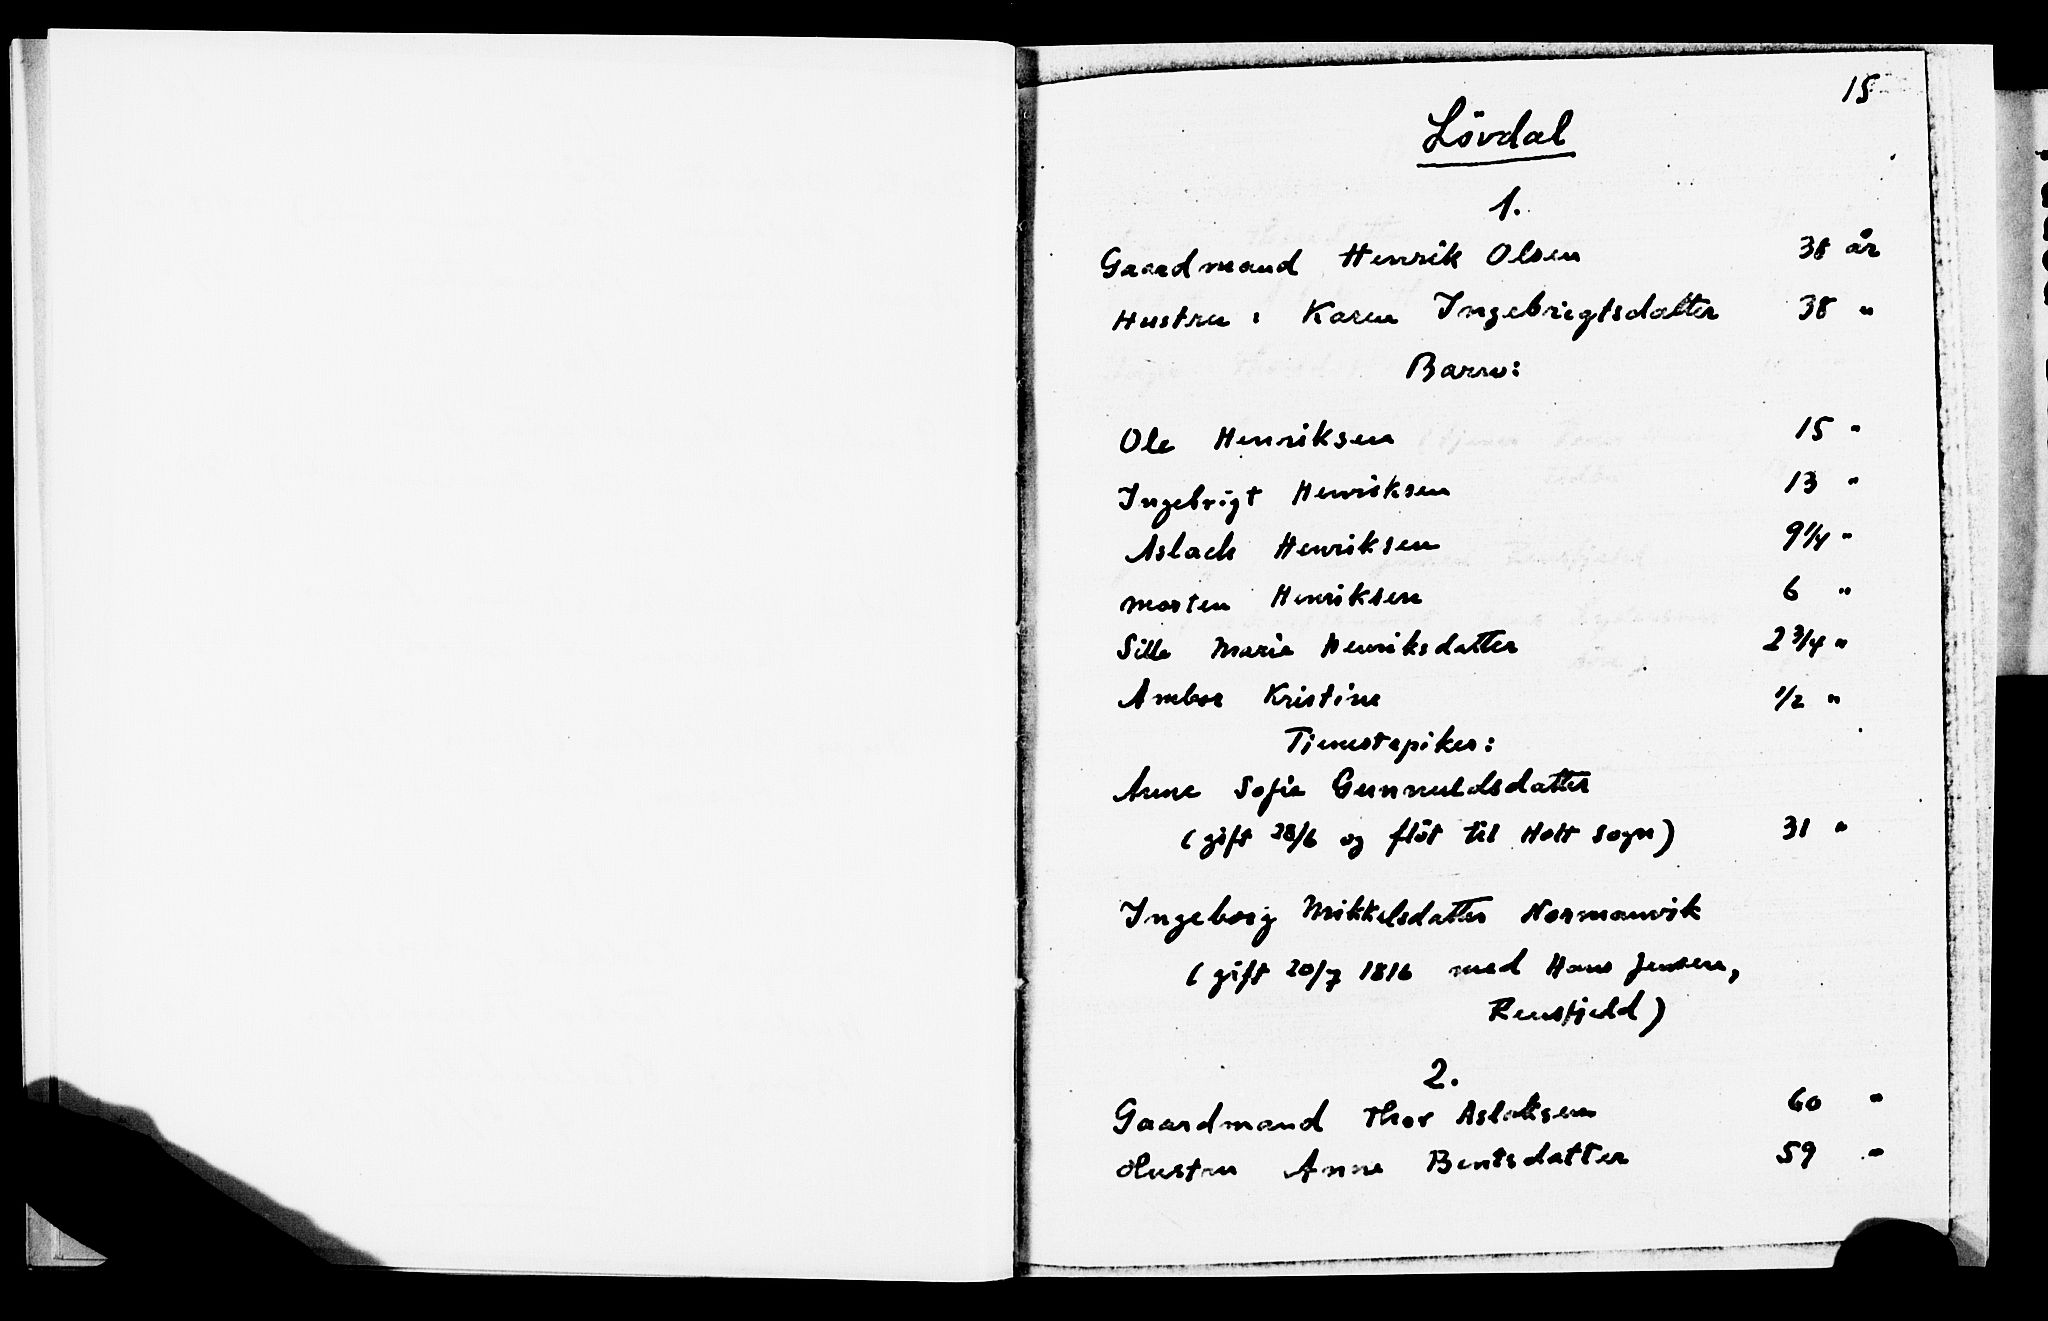 15
Lövdal
1.
Gaardmand Henrik Olsen 38 år
Hustru: Karen Ingebrigtsdatter 38 "
Barn:
Ole Henriksen 15 "
Ingebrigt Henriksen 13 "
Aslach Henriksen 9 1/4 "
Morten Henriksen 6 "
Sille Marie Henriksdatter 2 3/4 "
Ambor Kristine 1/2 "
Tjenestepiker:
Anne Sofie Gunnuldsdatter
(gift 28/6 og flöt til Holt sogn) 31 "
Ingeborg Mikkelsdatter Normanvik
(gift 20/7 1816 med Hans Jensen,
Rensfjeld)
2.
Gaardmand Thor Aslaksen 60 "
Hustru Anne Bentsdatter 59 "